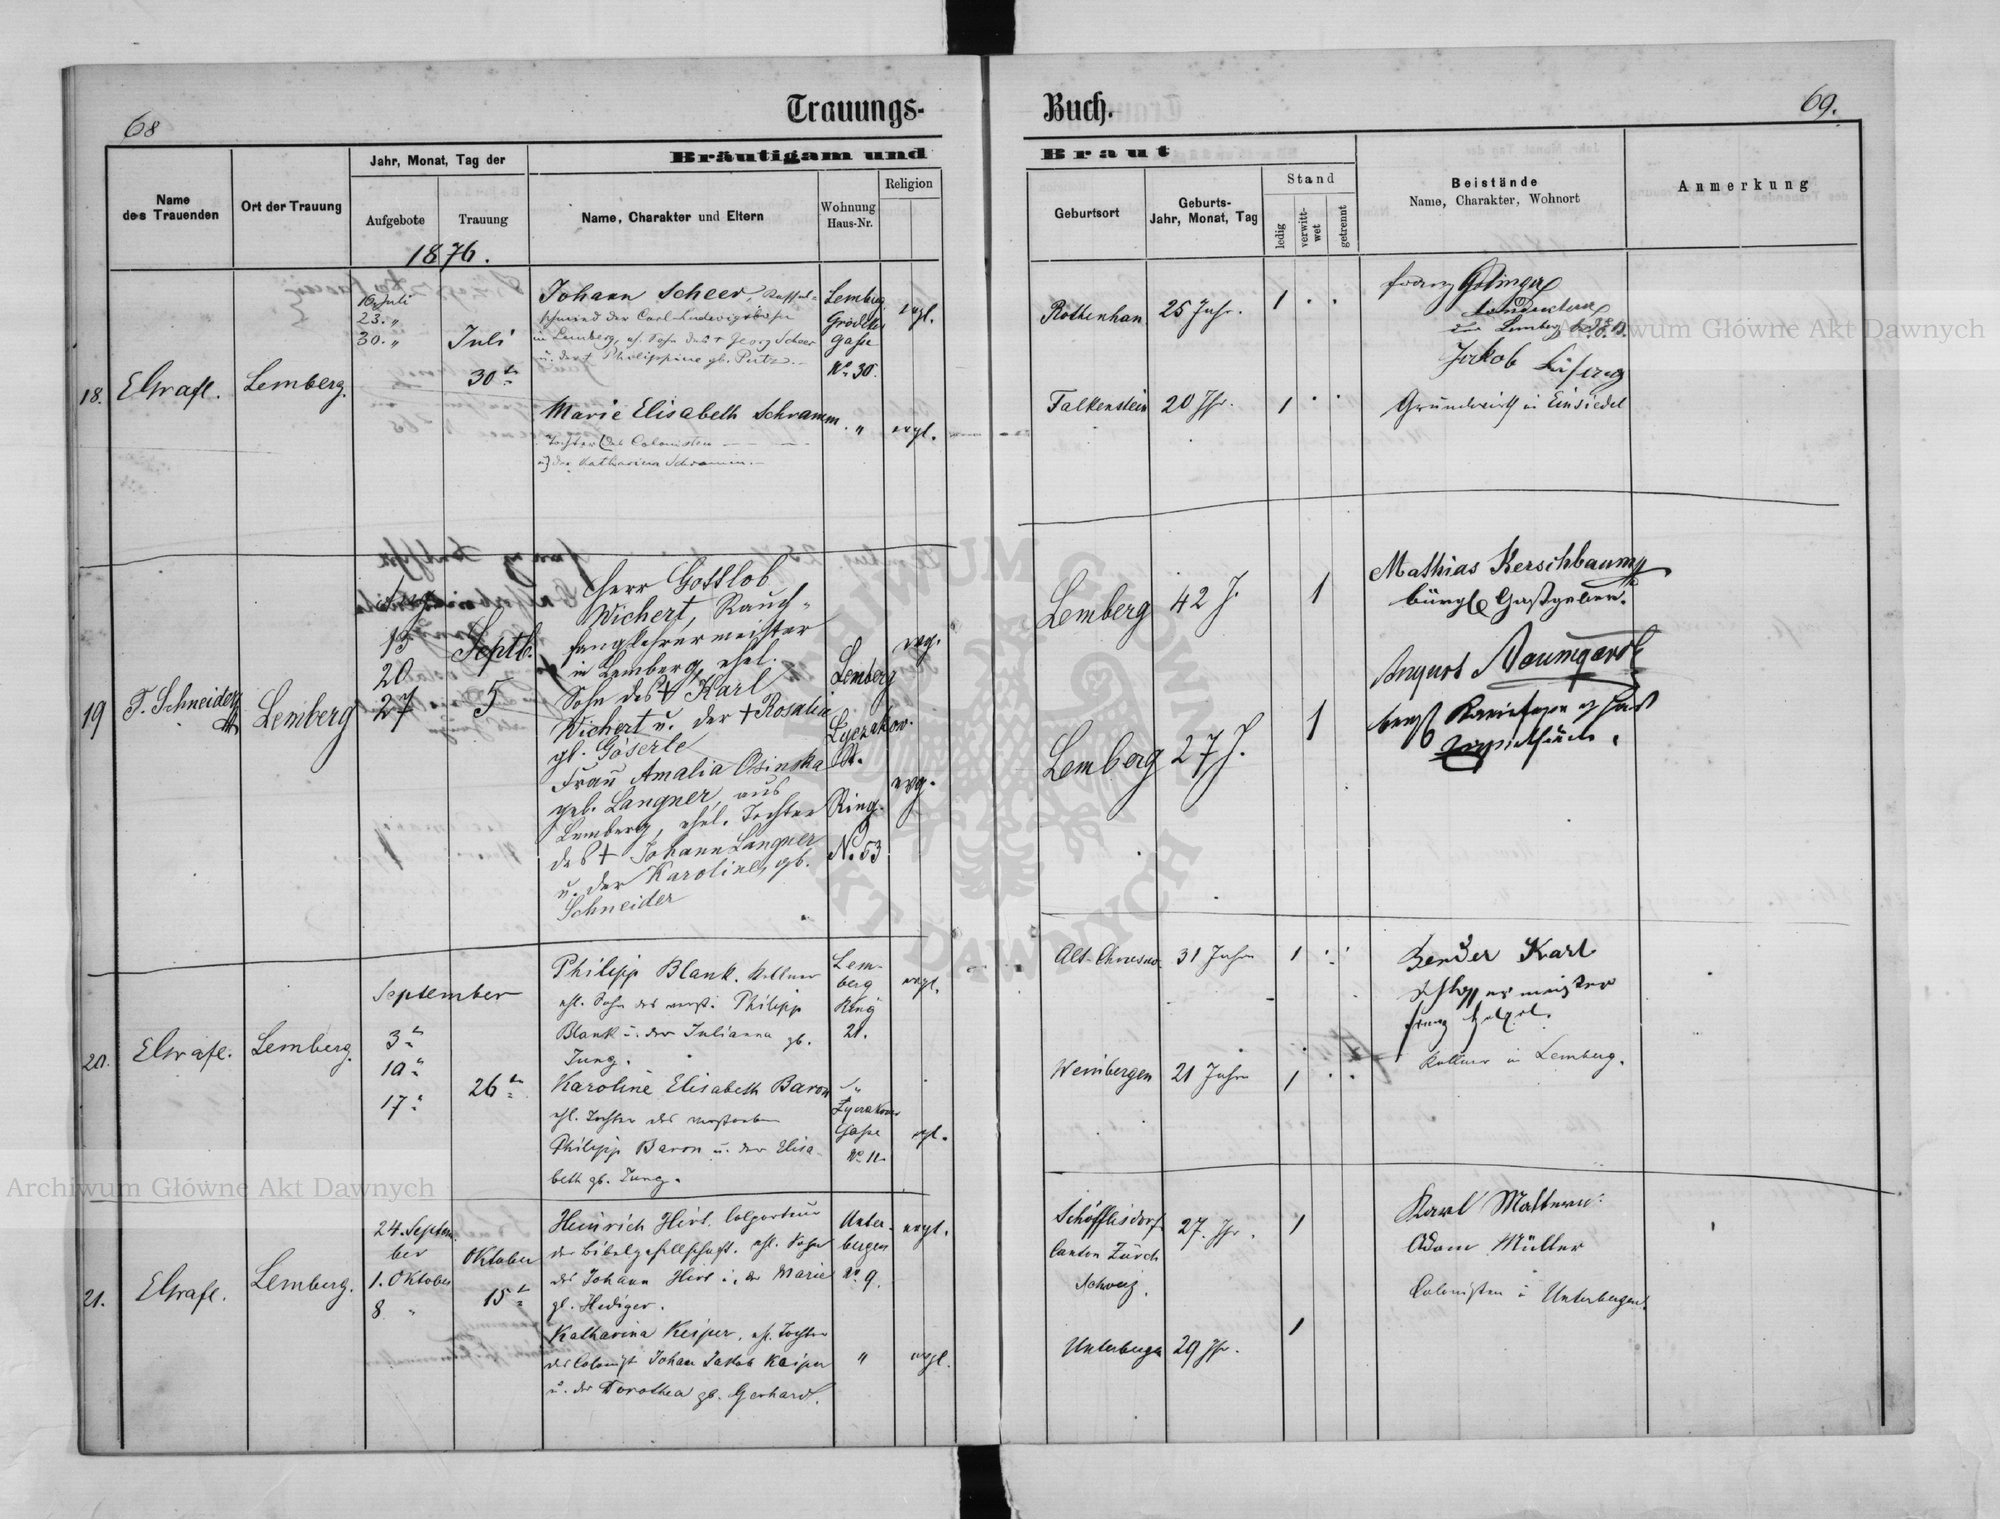 68
Trauungs-
Buch.
69.
Name
des Trauenden
Ort der Trauung
Jahr, Monat, Tag der
Aufgebote
Trauung
Bräutigam und
Name, Charakter und Eltern
Wohnung
Haus-Nr.
Religion
Braut
Geburtsort
Geburts-
Jahr, Monat, Tag
Stand
ledig
verwitt-
wet
getrennt
Beistände
Name, Charakter, Wohnort
Anmerkung
1876.
18.
Elsrafl.
Lemberg.
16. Juli
23. "
30. "
Juli
30
Johann Scheer,
schmied der Carl-Ludwigsbahn
in Lemberg, ehl. Sohn des † Georg Scheer
u. der † Philippine gb. Putz.
Lemberg
Grodeker
Gasse
No 30.
evgl.
Rothenhan
25 Jahr.
1
Franz
Lemberg
Jakob
Marie Elisabeth Schramm.
Tochter des Colonisten
u. der Katharina Schramm.
"
evgl.
Falkenstein
20 Jhr.
1
Grundwirth in Einsiedel
19
T. Schneider
Lemberg
13
20
27
Septb.
5
Herr Gottlob
Wichert, Rauch-
fangkehrermeister
in Lemberg, ehel.
Sohn des † Karl
Wichert u. der † Rosalia
gb. Göserle
Lemberg
Lyczakow.
Str.
evg.
Lemberg
42 J.
1
Mathias Kerschbaum
bürgl. Gastgeber.
August Baumgardt
Frau Amalia Osinska
geb. Langner, aus
Lemberg, ehel. Tochter
des † Johann Langner
u. der Karoline, gb.
Schneider
Ring.
No. 53
evg.
Lemberg
27 J.
1
20.
Elsrafl.
Lemberg.
September
3
10
17
26
Philipp Blank. Kellner
ehl. Sohn des verst. Philipp
Blank u. der Julianna gb.
Jung.
Lem-
berg
Ring
21.
evgl.
31 Jahr
1
Bender Karl
Schlossermeister
Franz
Kellner in Lemberg.
Karoline Elisabeth Baron
ehl. Tochter des verstorben
Philipp Baron u. der Elisa-
beth gb. Jung.
"
Lyczakow
Gasse
No 11.
evgl.
Weinbergen
21 Jahr
1
21.
Elsrafl.
Lemberg.
24. Septem-
ber
1. Oktober
8 "
Oktober
15
Heinrich Hirt, Colporteur
der Bibelgesellschaft. ehl. Sohn
des Johann Hirt u. der Marie
gb. Hediger.
Unter-
bergen
No 9.
evgl.
Schöfflisdorf
Canton Zürch
Schweiz.
27. Jhr.
1
Karl Mattern
Adam Müller
Colonisten in Unterbergen.
Katharina Keiper, ehl. Tochter
des Colonist Johan Jakob Keiper
u. der Dorothea gb. Gerhardt.
"
evgl.
Unterbergen
20 Jhr.
1
Archiwum Główne Akt Dawnych
Archiwum Główne Akt Dawnych
ARCHIWUM GŁÓWNE AKT DAWNYCH